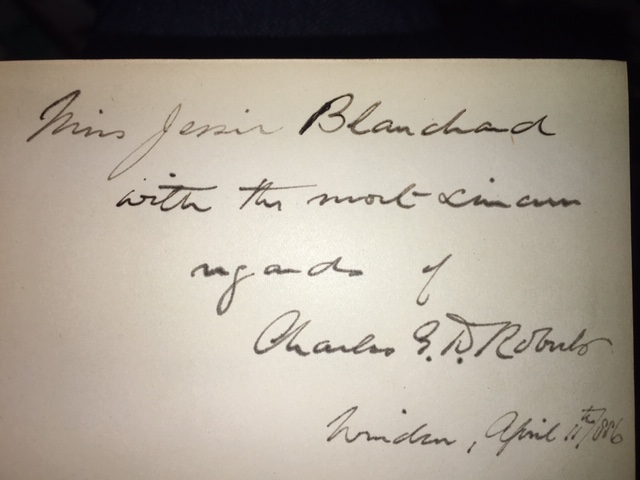 Miss Jessie Blanchard
with the most sincere
regards of
Charles G. D. Roberts
Windsor, April 11th/886